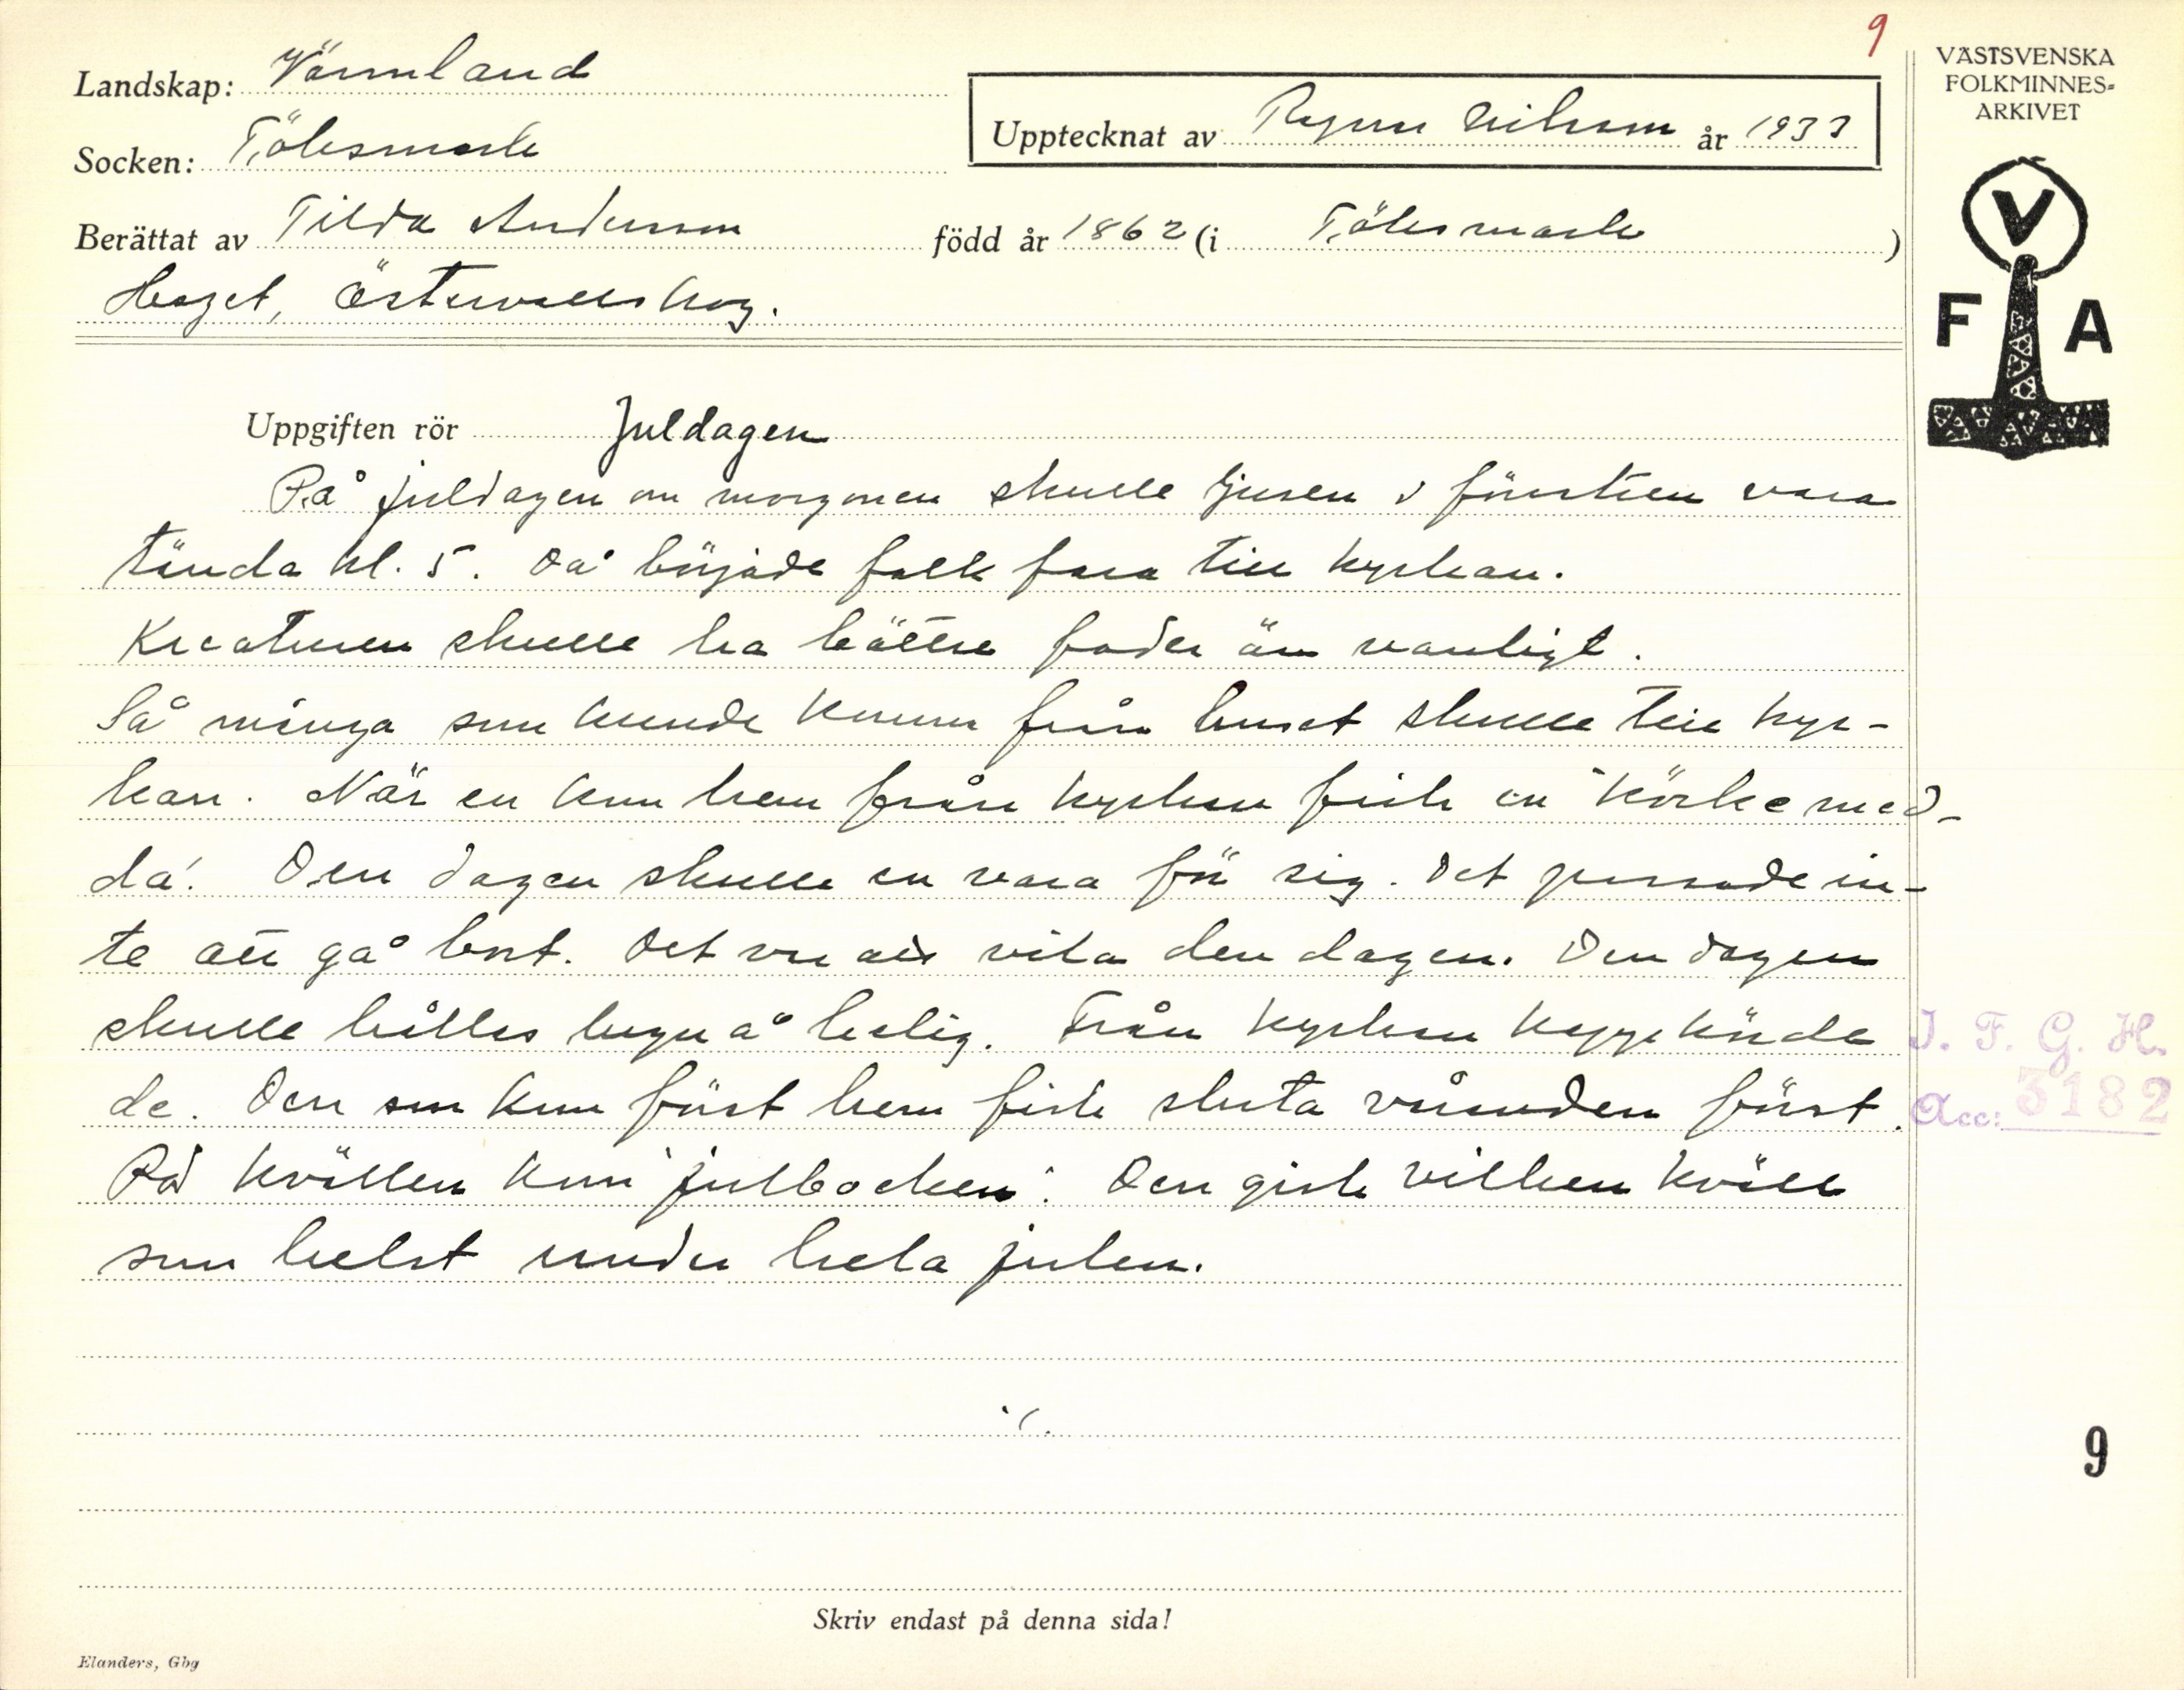 9
VÄSTSVENSKA
FOLKMINNES-
ARKIVET
Landskap: Värmland
Upptecknat av Ragnar Nilsson år 1933
Socken: Töcksmark
Berättat av Tilda Andersson född år 1862 (i Töcksmark)
Östervallskog.
V
F A
Uppgiften rör Juldagen
På juldagen om morgonen skulle ljusen i fönstren vara
tända kl. 5. Då började folk fara till kyrkan.
Kreaturen skulle ha bättre foder än vanligt.
Så många som kunde komma från huset skulle till kyr-
kan. När en kom hem från kyrkan fick en "körkemed-
da". Den dagen skulle en vara för sig. Det passade in-
te att gå bort. Det var att vila den dagen. Den dagen
skulle hålles lugn å helig. Från kyrkan kappkörde
de. Den som kom först hem fick sluta våranden först.
På kvällen kom "julbocken". Den gick vilken kväll
som helst under hela julen.
I. F. G. H.
Acc: 3182
9
Skriv endast på denna sida!
Elanders, Gbg